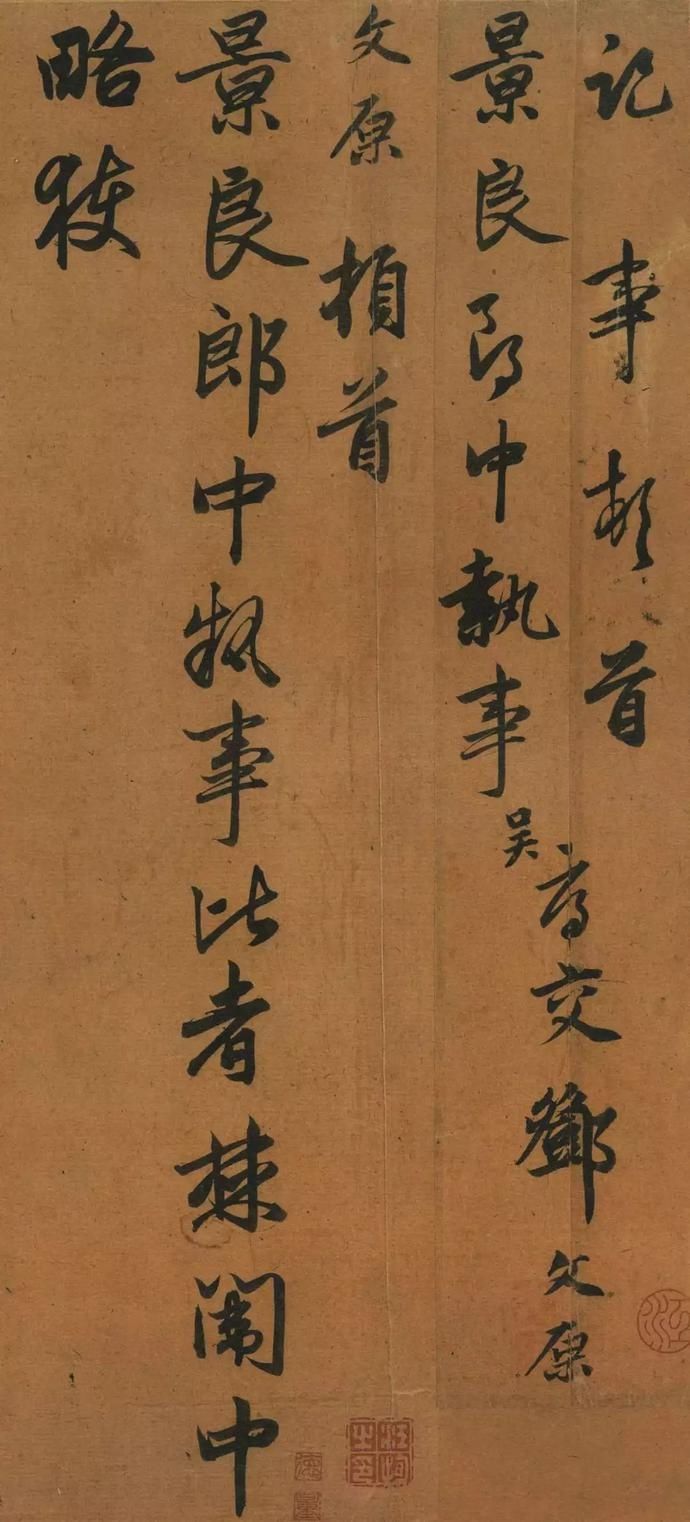 記事頓首
景良郎中執事
吴交鄧文原
文原頓首
景良郎中執事比者棘闈中
略獲